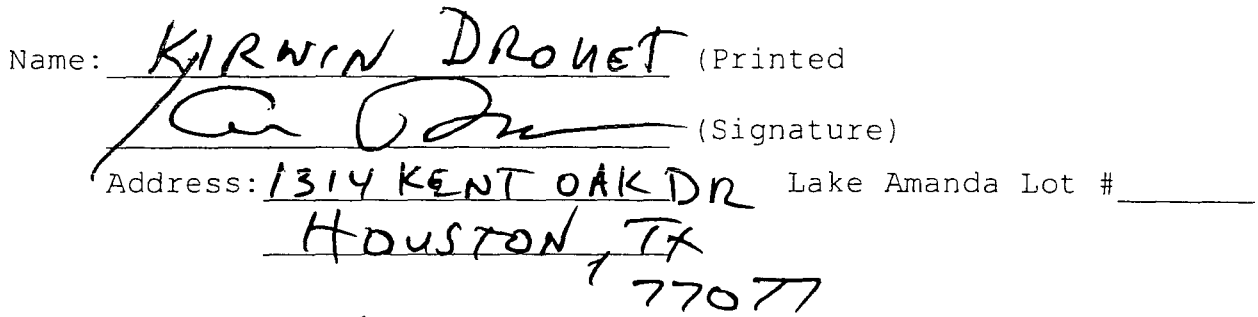 Name: KIRWIN DROUET (Printed
(Signature)
Address: 1314 KENT OAK DR Lake Amanda Lot #
HOUSTON, TX
77077